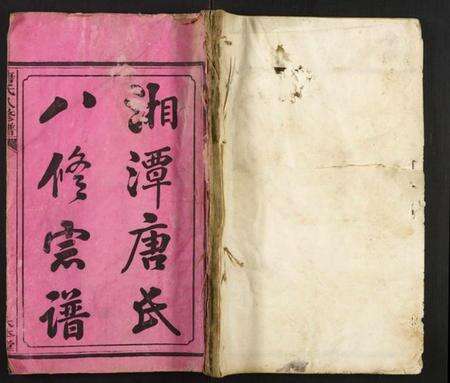 湘潭唐氏
八修宗谱